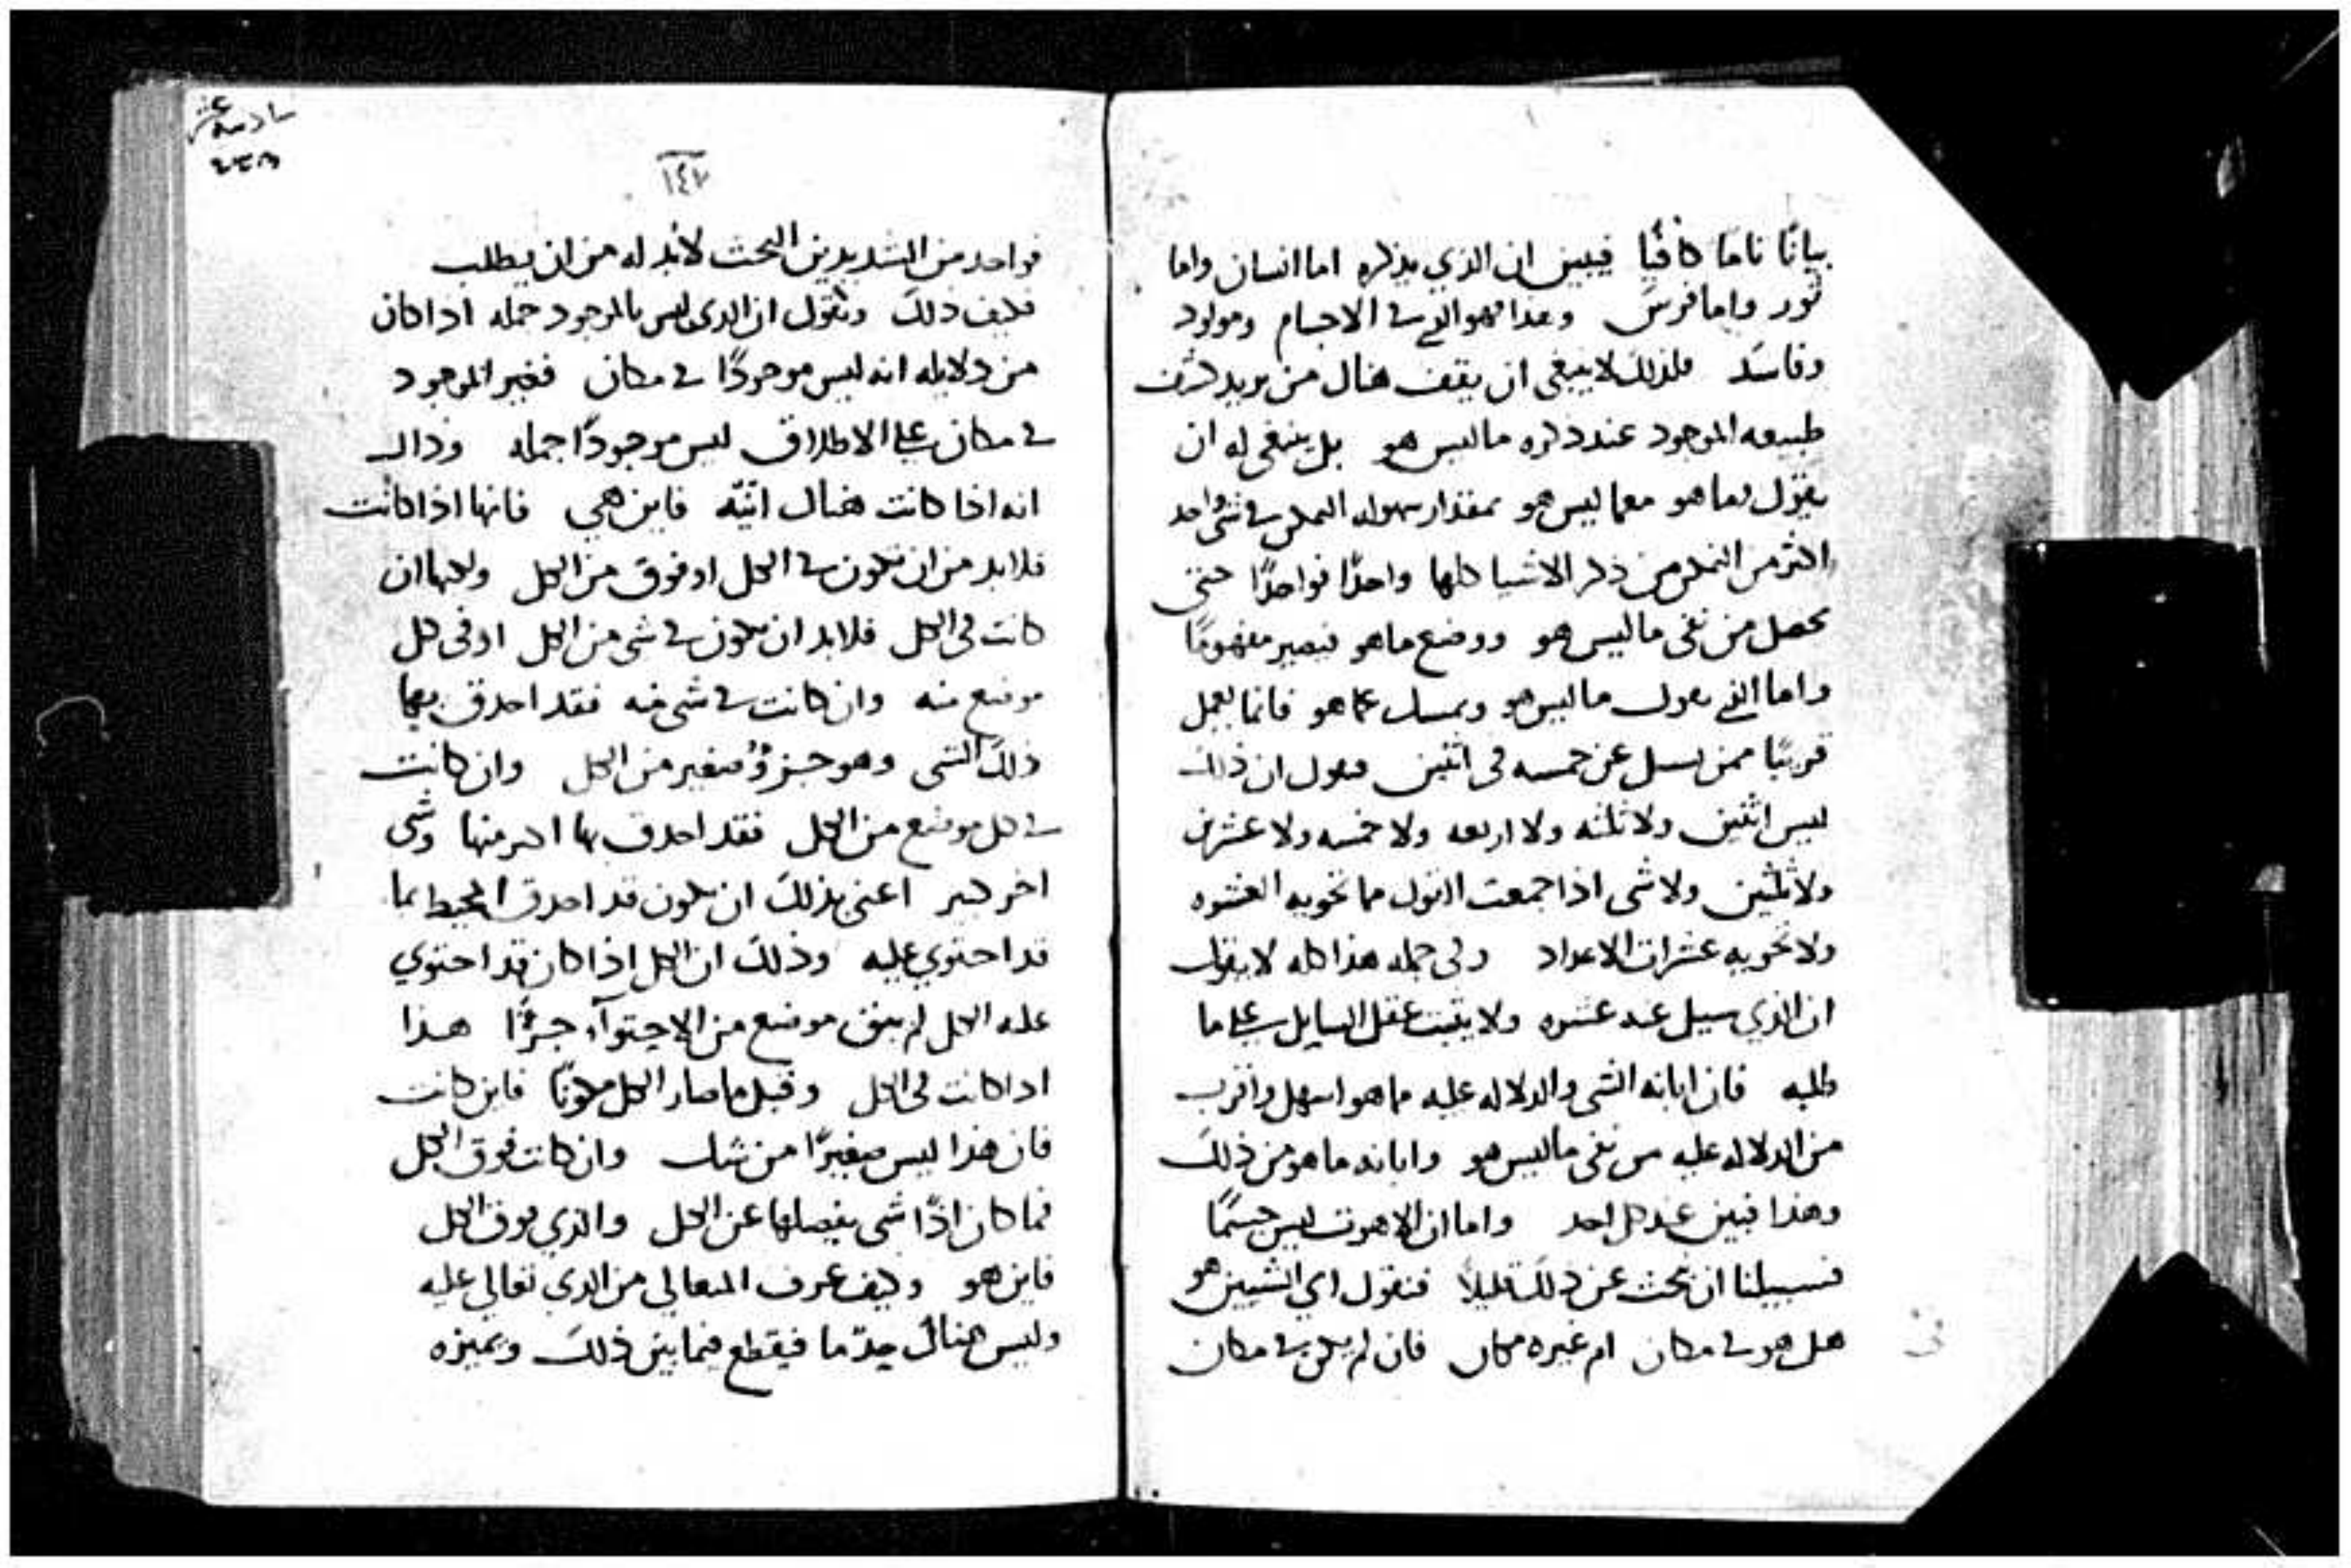 بيانًا تامًا كافيًا فيبين ان الذي يذكره اما انسان واما
ثور واما فرس وهذا فهو الذي في الاجسام ومولود
وفاسد فلذلك لا ينبغي ان يقف هناك من يريد كشف
طبيعه الموجود عند ذكره ما ليس هو بل ينبغي له ان
يقول بما هو معما ليس هو بمقدار سهوله التمكن في شي واحد
اكثر من التمكن من ذكر الاشيا كلها واحدًا فواحدًا حتى
يحصل من نفى ما ليس هو ووضع ما هو فيصير مفهومًا
واما الذي يقول ما ليس هو ويمسك عما هو فانما يعمل
قريبًا ممن يسل عن خمسه في اثنين فيقول ان ذلك
ليس اثنين ولا ثلثه ولا اربعه ولا خمسه ولا عشرين
ولا ثلثين ولا شي اذا جمعت القول مما تحويه العشره
ولا تحويه عشرات الاعداد وفي جمله هذا كله لا يقول
ان الذي سيل عنه عشره ولا يثبت عقل السايل على ما
طلبه فان ابانه الشي والدلاله عليه مما هو اسهل واقرب
من الدلاله عليه من نفى ما ليس هو وابانه ما هو من ذلك
وهذا فبين عند كل احد واما ان اللاهوت ليس جسمًا
فسبيلنا ان نبحث عن ذلك قليلاً فنقول اي الشيين هو
هل هو في مكان ام غيره مكان فان لم يكن في مكان
سادسة عشر
١٤٢
فواحد من الشديدين البحث لا بد له من ان يطلب
فكيف ذلك ونقول ان الذي ليس بالموجود جمله اذا كان
من دلايله انه ليس موجودًا في مكان فغير الموجود
في مكان على الاطلاق ليس موجودًا جمله وذاك
انه اذا كانت هناك انيّه فاين هي فانها اذا كانت
فلا بد من ان تكون في الكل او فوق من الكل ولكنها ان
كانت في الكل فلا بد ان تكون في شي من الكل او في كل
موضع منه وان كانت في شي منه فقد احدق بها
ذلك الشي وهو جزؤ صغير من الكل وان كانت
في كل موضع من الكل فقد احدق بها اكبر منها وشي
اخر كبير اعني بذلك ان يكون قد احدق المحيط بما
قد احتوي عليه وذلك ان الكل اذا كان قد احتوي
عليه الكل لم يبق موضع من الاحتوآء جزؤًا هذا
اذا كانت في الكل وقبل ما صار الكل مكونًا فاين كانت
فان هذا ليس صغيرًا من شك وان كانت فوق الكل
فما كان اذًا شي يفصلها عن الكل والذي فوق الكل
فاين هو وكيف عرف المتعالي من الذي تعالي عليه
وليس هناك حدّ ما فيقطع فيما بين ذلك ويميزه